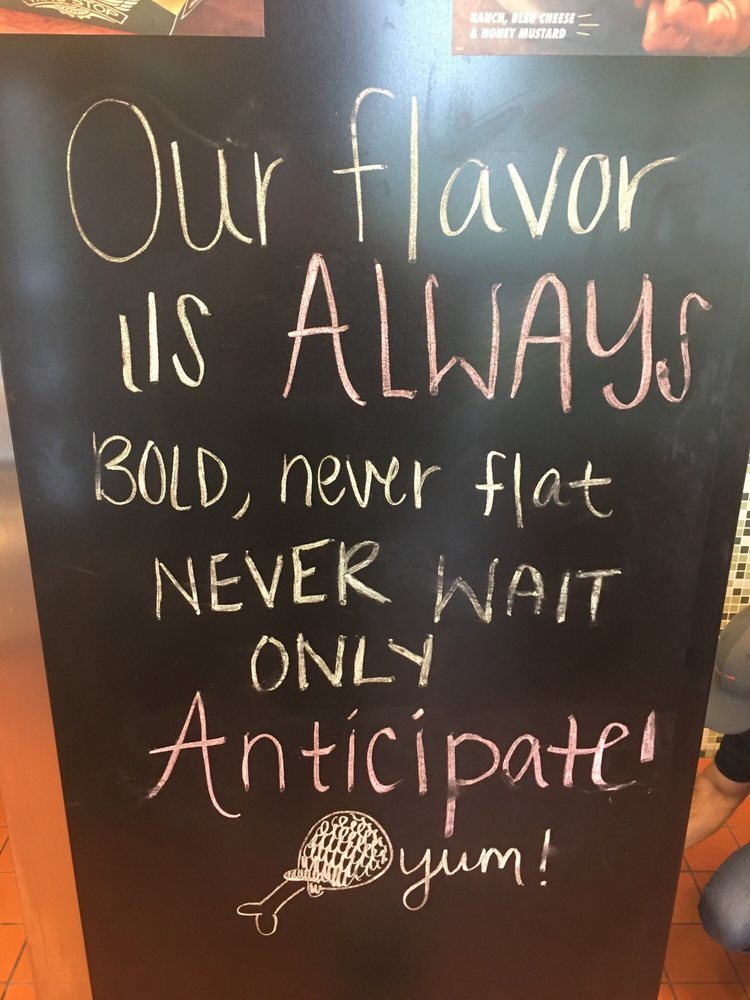 RANCH, BLEU CHEESE
& HONEY MUSTARD
Our flavor
is ALWAYS
BOLD, never flat
NEVER WAIT
ONLY
Anticipate!
yum!